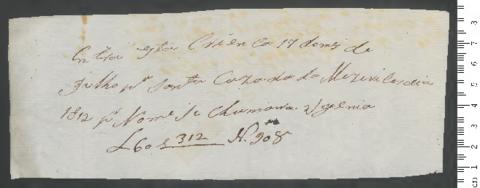 Entrou esta Crién ca 17 do mez de
Julho pª Santa Caza da da Mizericordia
1812 pª Nome Se Chamara Efgenia
L 60 f 312 N. 908